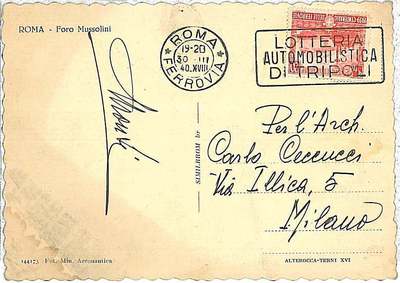 ROMA - Foro Mussolini
ROMA
19-20
30 III
40.XVIII
FERROVIA
LOTTERIA
AUTOMOBILISTICA
DI TRIPOLI
Per l'Arch.
Carlo Ceccucci
Via Illica, 5
Milano
SIMILBROM br
Fot. Min. Aeronautica
ALTEROCCA-TERNI XVI